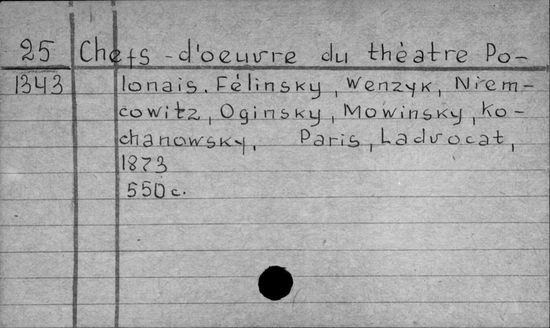 25 Chefs-d'oeuvre du théatre Po-
1343 lonais. Félinsky, Wenzyk, Niem-
cowitz, Oginsky, Mowinsky, Ko-
chanowsky. Paris, Ladvocat,
1873
550 c.